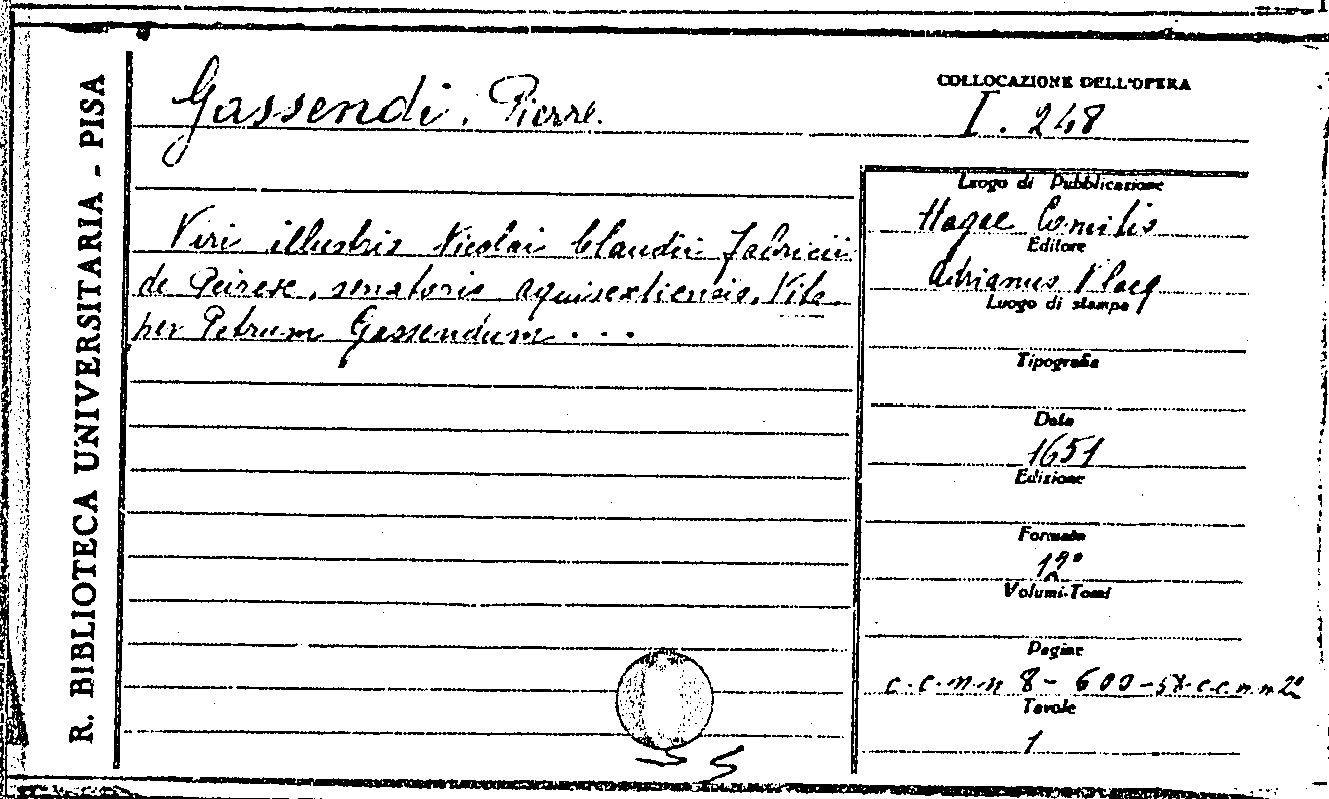 R. BIBLIOTECA UNIVERSITARIA - PISA
Gassendi, Pierre.
COLLOCAZIONE DELL'OPERA
I. 248
Viri illustris Nicolai Claudii Fabricii
de Peiresc, senatoris aquisextiensis, Vita
per Petrum Gassendum . . .
Luogo di Pubblicazione
Hagae Comitis
Editore
Adrianus Vlacq
Luogo di stampa
Tipografia
Data
1651
Edizione
Formato
12°
Volumi-Tomi
Pagine
c.c.n.n 8 - 600 -
Tavole
1